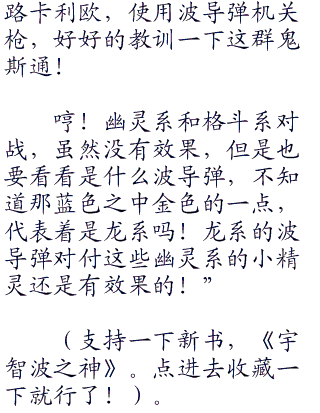 路卡利欧，使用波导弹机关
枪，好好的教训一下这群鬼
斯通！
哼！幽灵系和格斗系对
战，虽然没有效果，但是也
要看看是什么波导弹，不知
道那蓝色之中金色的一点，
代表着是龙系吗！龙系的波
导弹对付这些幽灵系的小精
灵还是有效果的！”
（支持一下新书，《宇
智波之神》。点进去收藏一
下就行了！）。